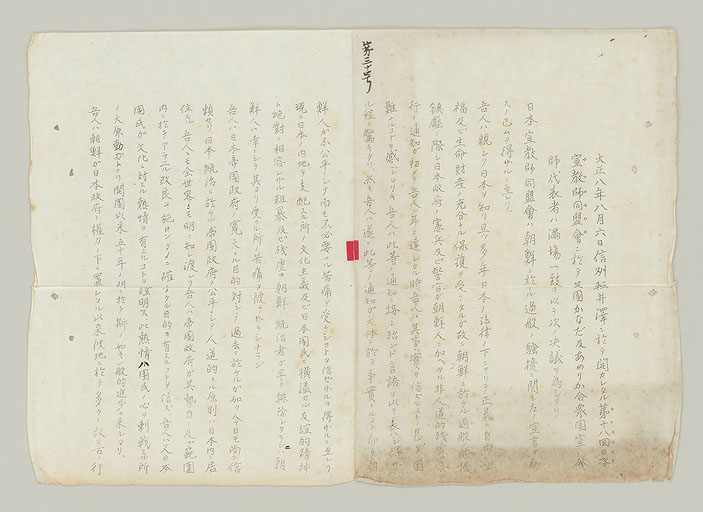 第三十号
大正八年八月六日信州軽井澤ニ於テ開カレタル第十八回日本
宣教師同盟會ニ於テ英國かなだ及あめりか合衆國宣教
師代表者ハ満場一致ヲ以テ次ノ決議ヲ為シタリ
日本宣教師同盟會ハ朝鮮ニ於ケル過般ノ騒擾ニ関シ左ノ宣言ヲ為
スノ已ムヲ得サルニ至レリ
吾人ハ親シク日本ヲ知リ且ツ多年日本ノ法律ノ下ニアリテ正義ト自由
福及ビ生命財産ノ充分ナル保護ヲ受ケタルガ故ニ朝鮮ニ於ケル過般ノ騒擾
鎮壓ニ際シ日本政府ノ憲兵及ビ警官ガ朝鮮人ニ加ヘタル非人道的残
行ノ通知ガ初メテ吾人ノ耳ニ達シタル時吾人ハ其事實ヲ信ズルニ甚ダ困
難ナルコトヲ感ジタリキ吾人ハ此等ノ通知ニ接シ殆ンド言語ヲ以テ表ハシ得ザ
ル程ニ驚キタリ然モ吾人ハ遂ニ此等ノ通知ガ大体ニ於テ事實ナルコト即チ朝
鮮人ガ不公平ニシテ而モ不必要ナル苦痛ヲ受ケシコトヲ信ゼザルヲ得ザルニ至レリ
現ニ日本ノ内地ヲ支配スル所ノ文化主義及ビ日本國民ニ横溢セル友誼的精神
ト絶對ニ相容レザル粗暴及ビ残虐ナル朝鮮ノ統治者ガ早ク排除セラレタリ
鮮人ハ幸ニシテ其ヨリ受クル所ノ苦痛ヲ脱
吾人ハ日本帝國政府ノ寛大ナル目的ニ対シテ過去ニ於ケルガ如ク今日モ尚ホ信
頼セリ日本統治ニ於ケル帝國政府ノ公平ニシテ人道的ナル原則ハ日本内居
住ノ吾人ニモ全世界ニモ明ニ知レ渡レリ吾人ハ帝國政府ガ其勢力ノ及ブ範圍
内ニ於テアラユル改良ヲ施サンガタメニ確乎タル目的ヲ有スルコトヲ信ズ吾人ハ又日本
國民ガ文化ニ対スル熱情ヲ有スルコトヲ證明ス此熱情ハ國民ノ心ヲ刺戟スル所
ノ大原動力トナリ開國以来五十年ノ間ニ於テ斯ノ如キ一般的進歩ヲ来シタリ
吾人ハ朝鮮ガ日本政府ノ權力ノ下ニ置レタル以来彼地ニ於テ多クノ改革ノ行